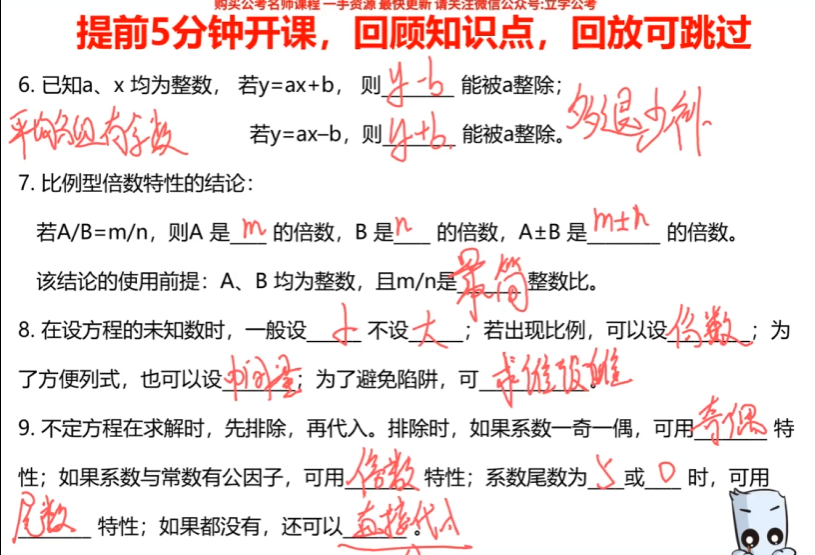 购买公考名师课程 一手资源 最快更新 请关注微信公众号:立学公考
提前5分钟开课，回顾知识点，回放可跳过
6. 已知a、x 均为整数， 若y=ax+b， 则 y-b 能被a整除；
平均分组有余数 若y=ax–b，则 y+b 能被a整除。多退少补.
7. 比例型倍数特性的结论：
若A/B=m/n，则A 是 m 的倍数，B 是 n 的倍数，A±B 是 m±n 的倍数。
该结论的使用前提：A、B 均为整数，且m/n是 最简 整数比。
8. 在设方程的未知数时，一般设 小 不设 大 ；若出现比例，可以设 份数 ；为
了方便列式，也可以设 中间量 ；为了避免陷阱，可 求谁设谁 。
9. 不定方程在求解时，先排除，再代入。排除时，如果系数一奇一偶，可用 奇偶 特
性；如果系数与常数有公因子，可用 倍数 特性；系数尾数为 5 或 0 时，可用
尾数 特性；如果都没有，还可以 直接代入 。